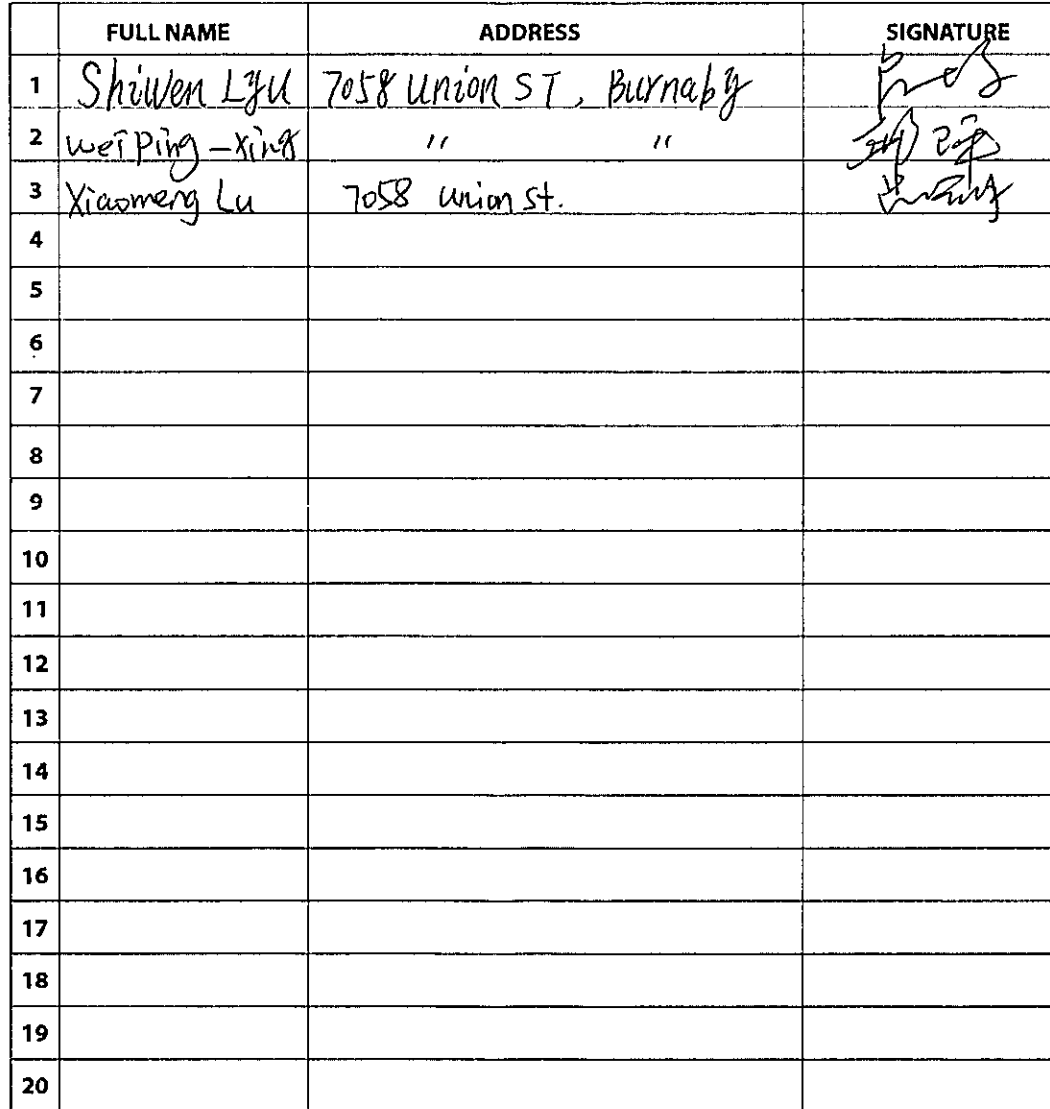 FULL NAME ADDRESS SIGNATURE
1 Shiwen Lyu 7058 Union ST, Burnaby
2 wei Ping - Xing " "
3 Xiaomeng Lu 7058 Union St.
4
5
6
7
8
9
10
11
12
13
14
15
16
17
18
19
20